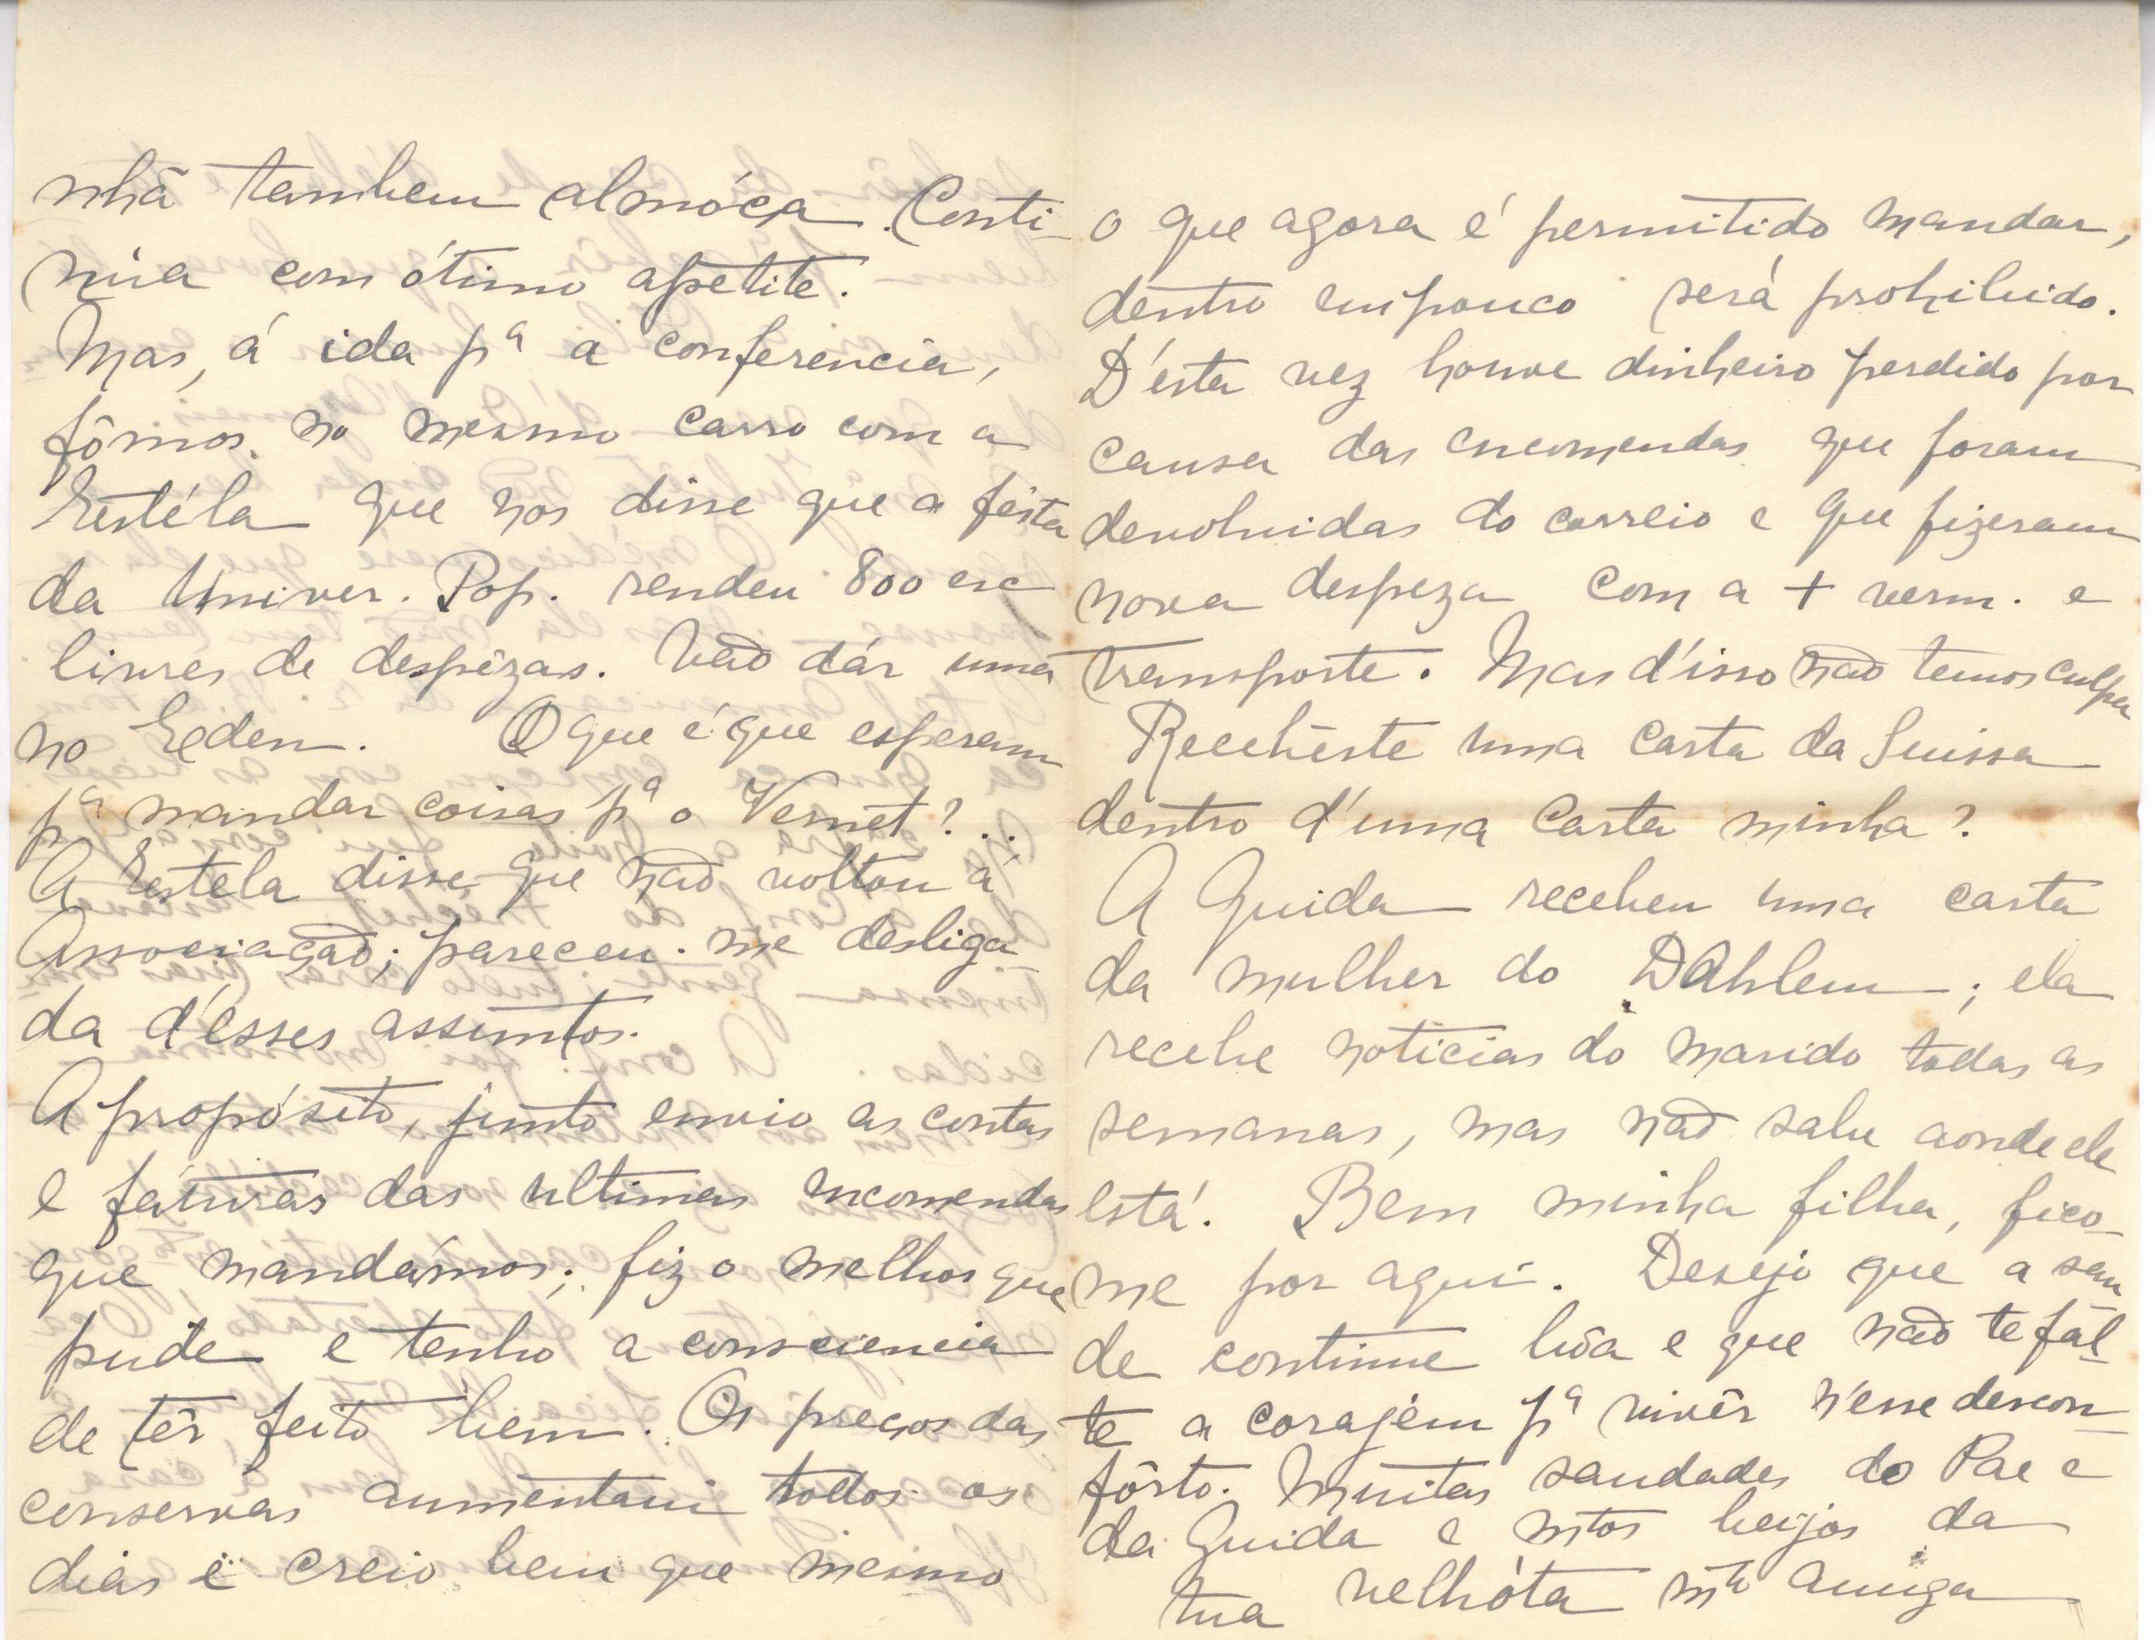 nhã tambem almóça. Conti-
núa com ótimo apetite.
Mas, á ida pª a conferencia,
fômos no mesmo carro com a
Estéla que nos disse que a fésta
da Univer. Pop. rendeu 800 esc
livres de despêzas. Vão dár uma
no Eden. O que é que esperam
pª mandar coisas pª o Vernet?...
A Estela disse que não voltou á
Associação; pareceu-me desliga-
da d'ésses assuntos.
A propósito, junto envio as contas
e fáturas das ultimas encomendas
que mandámos; fiz o melhor que
pude e tenho a consciencia
de têr feito bem. Os preços das
conservas aumentam todos os
dias e creio bem que mesmo
o que agora é permitido mandar,
dentro em pouco será prohibido.
D'ésta vez houve dinheiro perdido por
causa das encomendas que foram
devolvidas do correio e que fizeram
nova despeza com a + verm. e
transporte. Mas d'isso não temos culpa
Recebêste uma carta da Suissa
dentro d'uma carta minha?
A Guida recebeu uma carta
da mulher do Dahlem; ela
recebe noticias do marido todas as
semanas, mas não sabe aonde ele
está! Bem minha filha, fico-
me por aqui. Desejo que a sau
de continue bôa e que não te fál-
te a coragem pª vivêr n'esse descon-
fôrto. Muitas saudades do Pae e
da Guida e mtos beijos da
tua velhóta mto amiga